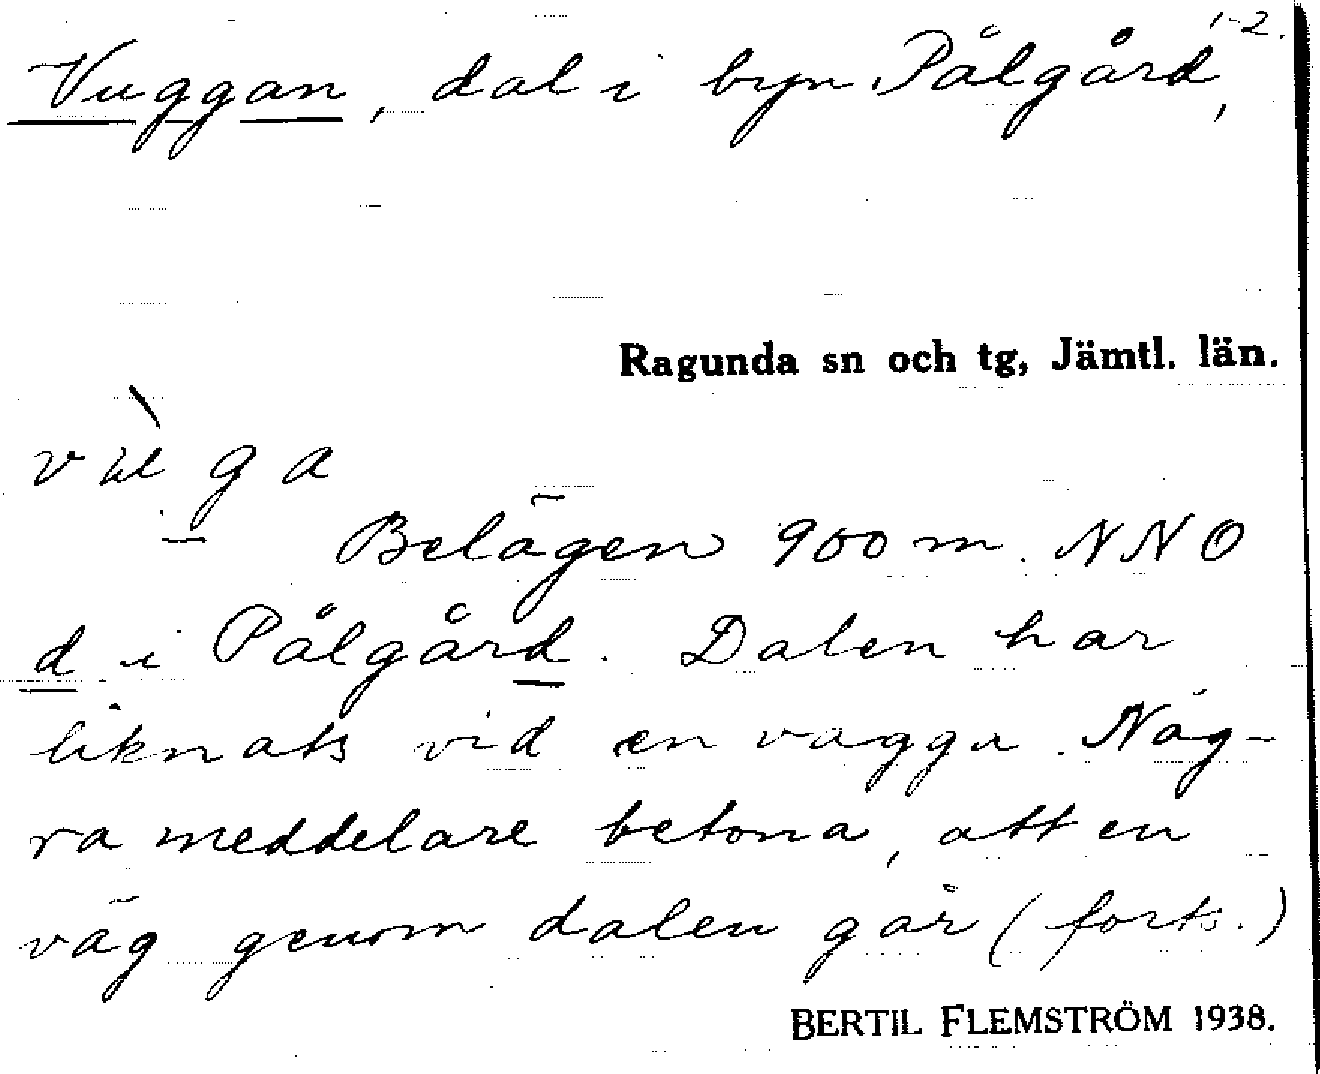 1-2.
Vuggan, dal i byn Pålgård,
Ragunda sn och tg, Jämtl. län.
Belägen 900 m. NNO
d i Pålgård. Dalen har
liknats vid en vagga. Någ-
ra meddelare betona, att en
väg genom dalen går (forts.)
BERTIL FLEMSTRÖM 1938.